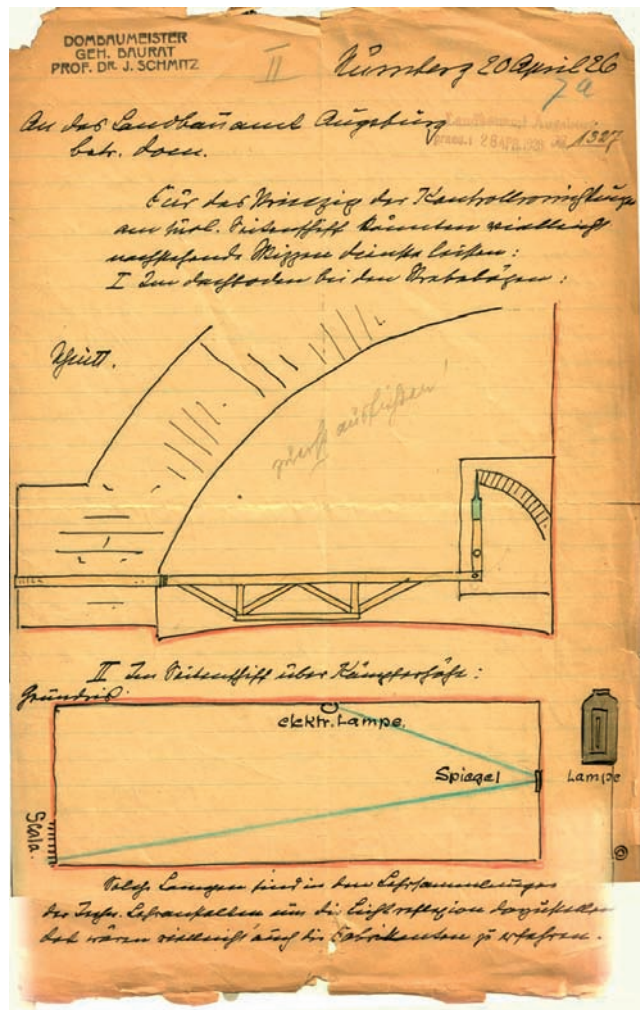 DOMBAUMEISTER
GEH. BAURAT
PROF. DR. J. SCHMITZ
II
Nürnberg 20 April 26
7a
An das Landbauamt Augsburg
Landbauamt Augsburg
praes.: 28 APR. 1926 No. 1327
betr. Dom.
Für das Prinzip der Kontrollvorrichtung
am südl. Seitenschiff könnten vielleicht
nachstehende Skizzen dienste leisten:
I Im dachboden bei den Strebebögen:
Schnitt.
zuerst ausführen!
II Im Seitenschiff über Kämpferhöhe:
Grundris.
elektr. Lampe.
Spiegel
Lampe
Scala.
Solche Lampen sind in den Lehrsammlungen
der Techn. Lehranstalten um die Lichtreflexion darzustellen
dort wären vielleicht auch die Fabrikanten zu erfahren.